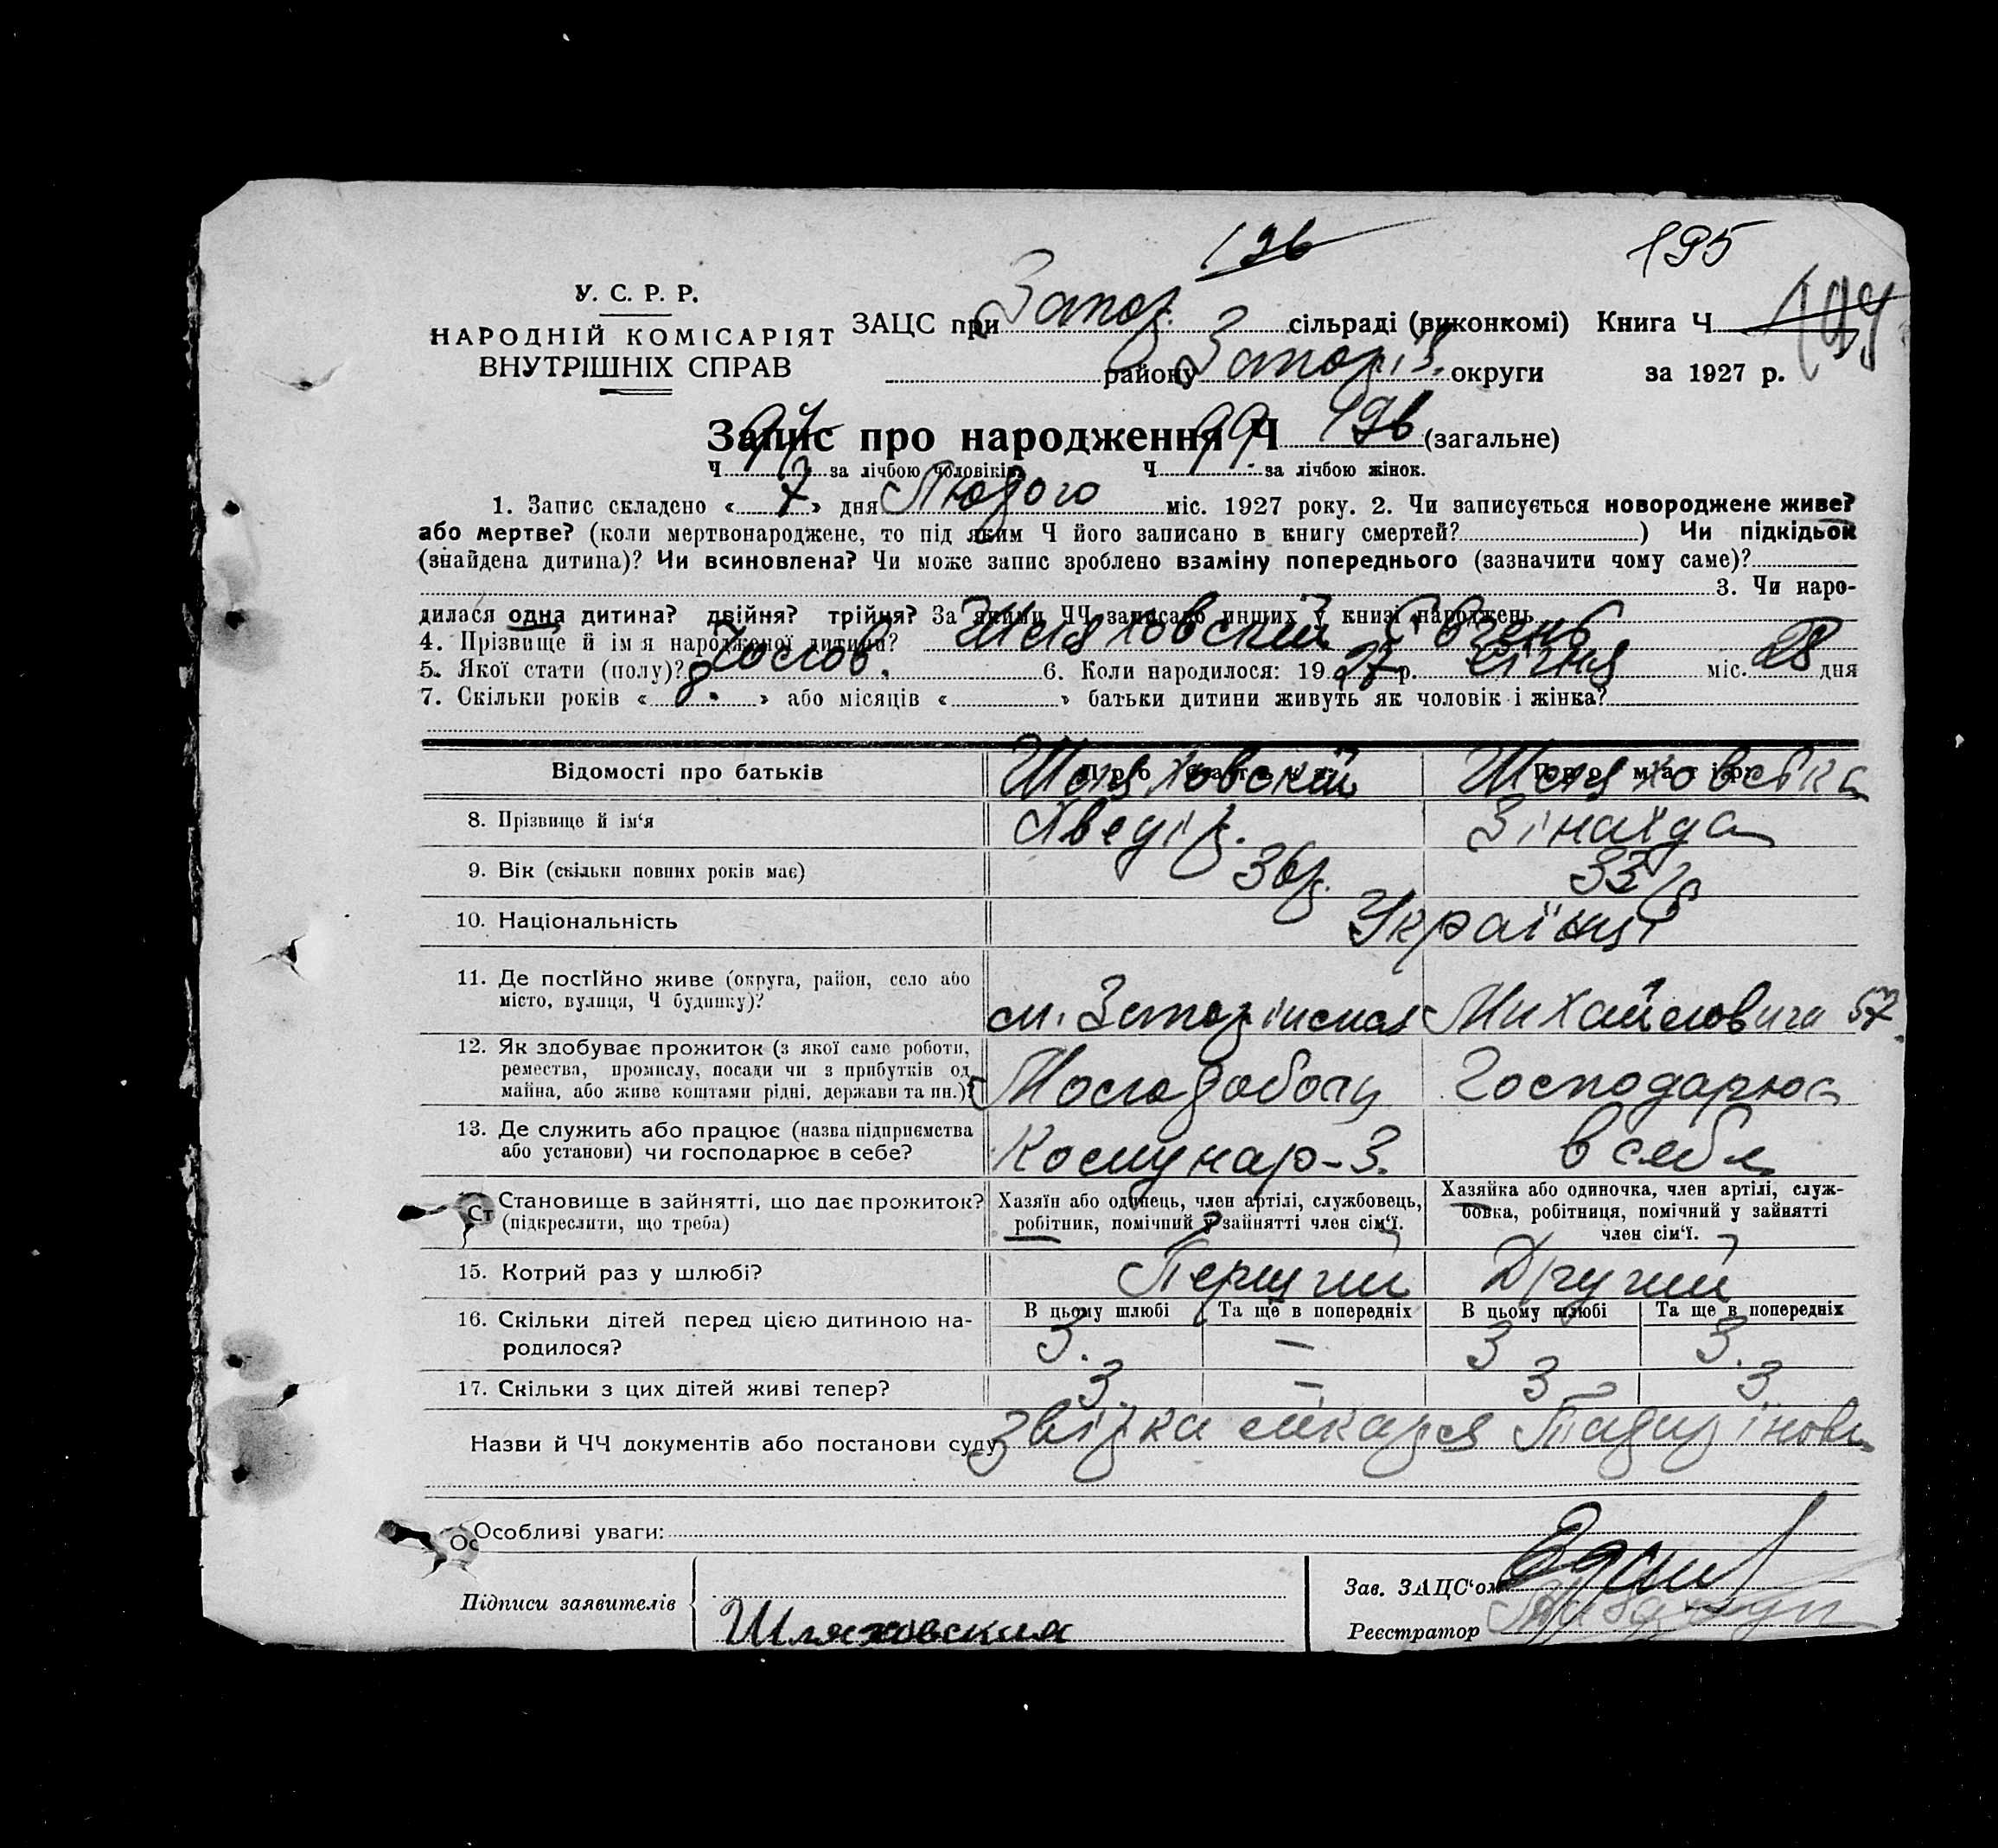 196
195
У. С. Р. Р.
НАРОДНІЙ КОМІСАРІЯТ
ВНУТРІШНІХ СПРАВ
ЗАЦС при Запор. сільраді (виконкомі) Книга Ч 194
району Запоріз. округи за 1927 р.
Запис про народження Ч 196 (загальне)
Ч 97 за лічбою чоловіків Ч 99 за лічбою жінок.
1. Запис складено « 7 » дня Лютого міс. 1927 року. 2. Чи записується новороджене живе?
або мертве? (коли мертвонароджене, то під яким Ч його записано в книгу смертей? ) Чи підкідьок
(знайдена дитина)? Чи всиновлена? Чи може запис зроблено взаміну попереднього (зазначити чому саме)?
3. Чи наро-
дилася одна дитина? двійня? трійня? За якими ЧЧ записано инших у книзі народжень
4. Прізвище й ім'я народженої дитини? Шляховский Євгень
5. Якої стати (полу)? Чолов. 6. Коли народилося: 19 27 р. січня міс. 28 дня
7. Скільки років « 8. » або місяців « » батьки дитини живуть як чоловік і жінка?
Відомості про батьків Про батька Про матір
8. Прізвище й ім'я Шляховский Шляховська Зінаїда
9. Вік (скільки повних років має) 36 р. 35 р
10. Національність Українці
11. Де постійно живе (округа, район, село або
місто, вулиця, Ч будинку)? м. Запоріжжя Михайловича 57
12. Як здобуває прожиток (з якої саме роботи,
ремества, промислу, посади чи з прибутків од
майна, або живе коштами рідні, держави та ин.)? Молотобоєц Господарює
13. Де служить або працює (назва підприємства
або установи) чи господарює в себе? Комунар-З. в себе
Становище в зайнятті, що дає прожиток?
(підкреслити, що треба)
Хазяїн або одинець, член артілі, службовець,
робітник, помічний у зайнятті член сім'ї.
Хазяйка або одиночка, член артілі, служ-
бовка, робітниця, помічний у зайнятті
член сім'ї.
15. Котрий раз у шлюбі? Перший Другий
В цьому шлюбі Та ще в попередніх В цьому шлюбі Та ще в попередніх
16. Скільки дітей перед цією дитиною на-
родилося? 3. – 3 3.
17. Скільки з цих дітей живі тепер? 3 – 3 3
Назви й ЧЧ документів або постанови суду звідка лікаря
Особливі уваги:
Підписи заявителів Шляховския
Зав. ЗАЦС'ом
Реєстратор